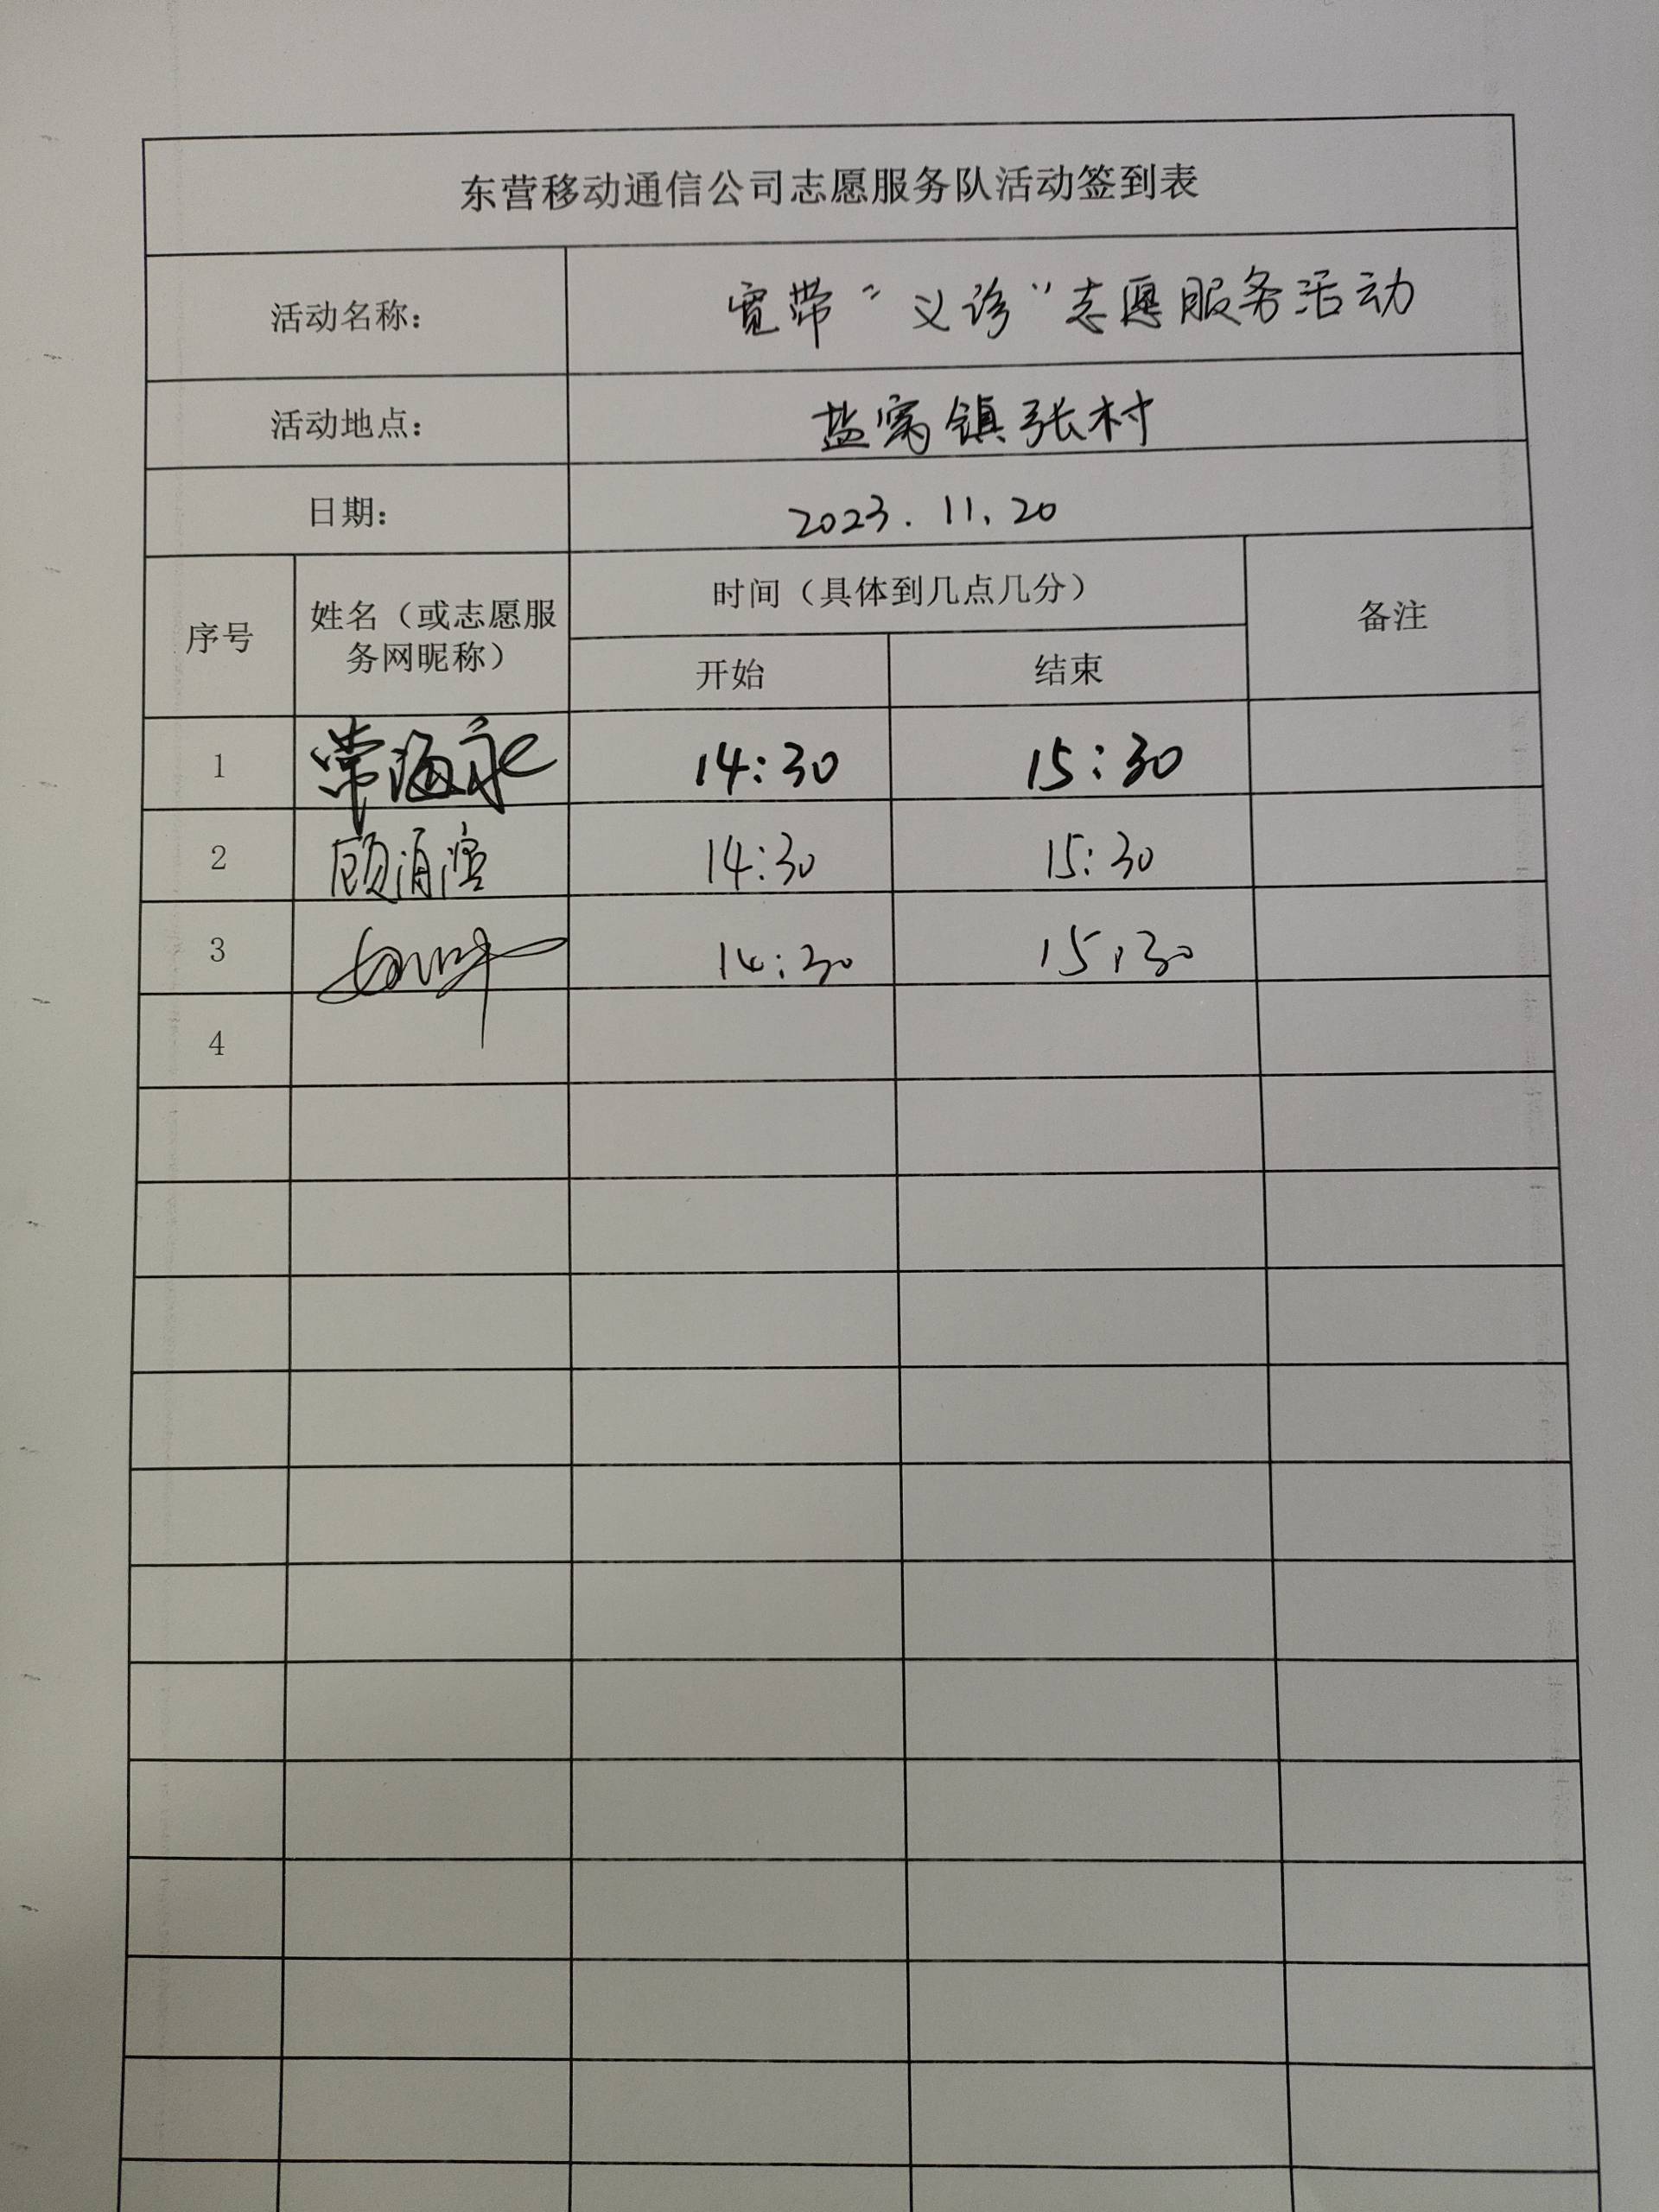 东营移动通信公司志愿服务队活动签到表
活动名称： 宽带“义诊”志愿服务活动
活动地点： 盐窝镇张村
日期： 2023.11.20
序号 姓名（或志愿服务网昵称） 时间（具体到几点几分） 备注
开始 结束
1 常海永 14:30 15:30
2 14:30 15:30
3 14:30 15:30
4